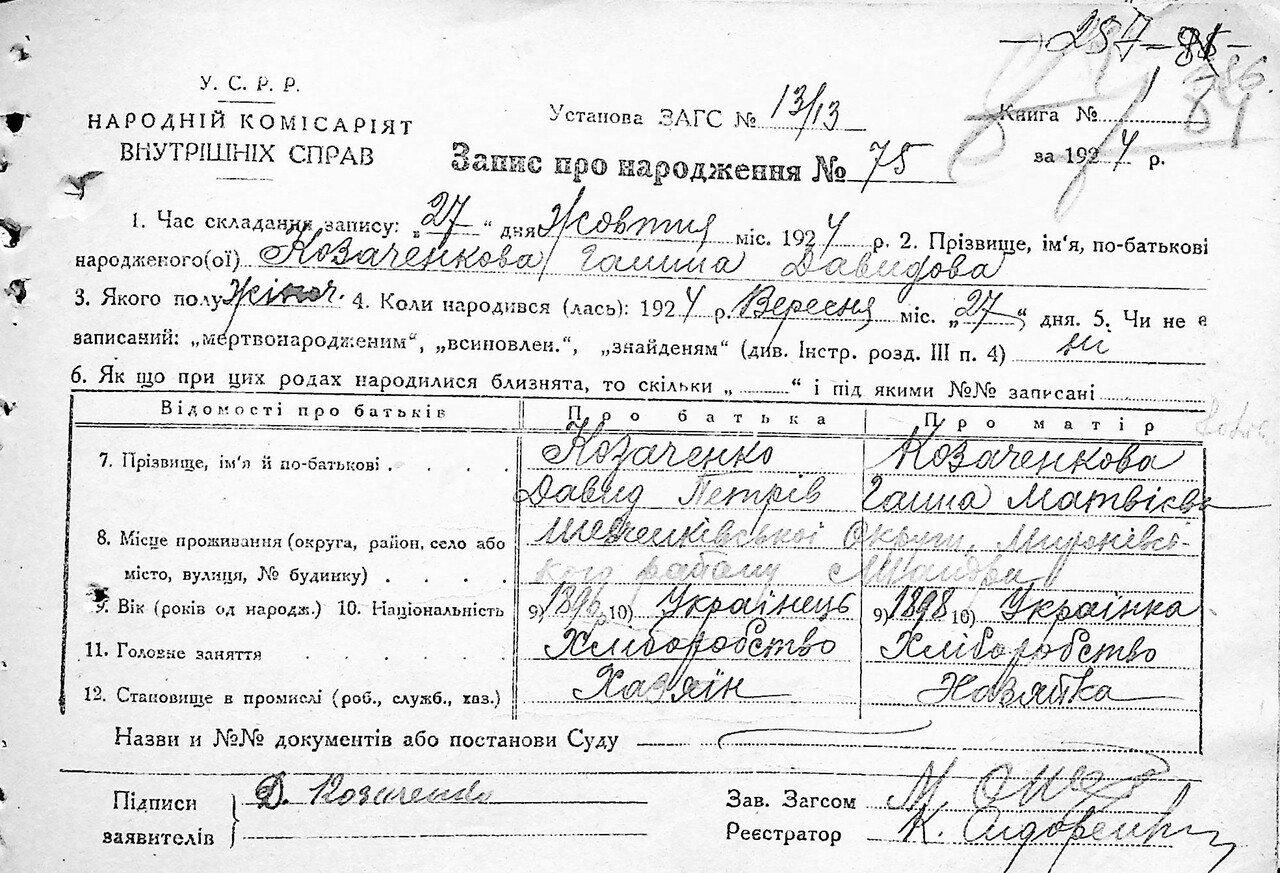 У. С. Р. Р.
НАРОДНІЙ КОМІСАРІЯТ
ВНУТРІШНІХ СПРАВ
Установа ЗАГС № 13/13
Книга № 1
за 1924 р.
Запис про народження № 75
1. Час складання запису: „27“ дня Жовтня міс. 1924 р. 2. Прізвище, ім'я, по-батькові
народженого(ої) Козаченкова Ганна Давидова
3. Якого полу жіноч. 4. Коли народився (лась): 1924 р. Вересня міс. „27“ дня. 5. Чи не є
записаний: „мертвонародженим“, „всиновлен.“, „знайденям“ (див. Інстр. розд. III п. 4) ні
6. Як що при цих родах народилися близнята, то скільки „ “ і під якими №№ записані
Відомості про батьків Про батька Про матір
7. Прізвище, ім'я й по-батькові . . . . Козаченко Козаченкова
Давид Петрів Ганна Матвієва
8. Місце проживання (округа, район, село або Шевченківської Округи, Миронівсь-
місто, вулиця, № будинку) . . . . кого району Шандра
9. Вік (років од народж.) 10. Національність 9) 1896 10) Українець 9) 1898 10) Українка
11. Головне заняття . . . . . . Хліборобство Хліборобство
12. Становище в промислі (роб., служб., хаз.) Хазяїн Хазяйка
Назви и №№ документів або постанови Суду
Підписи Д. Козаченко
заявителів
Зав. Загсом М.
Реєстратор К. Сидоренко